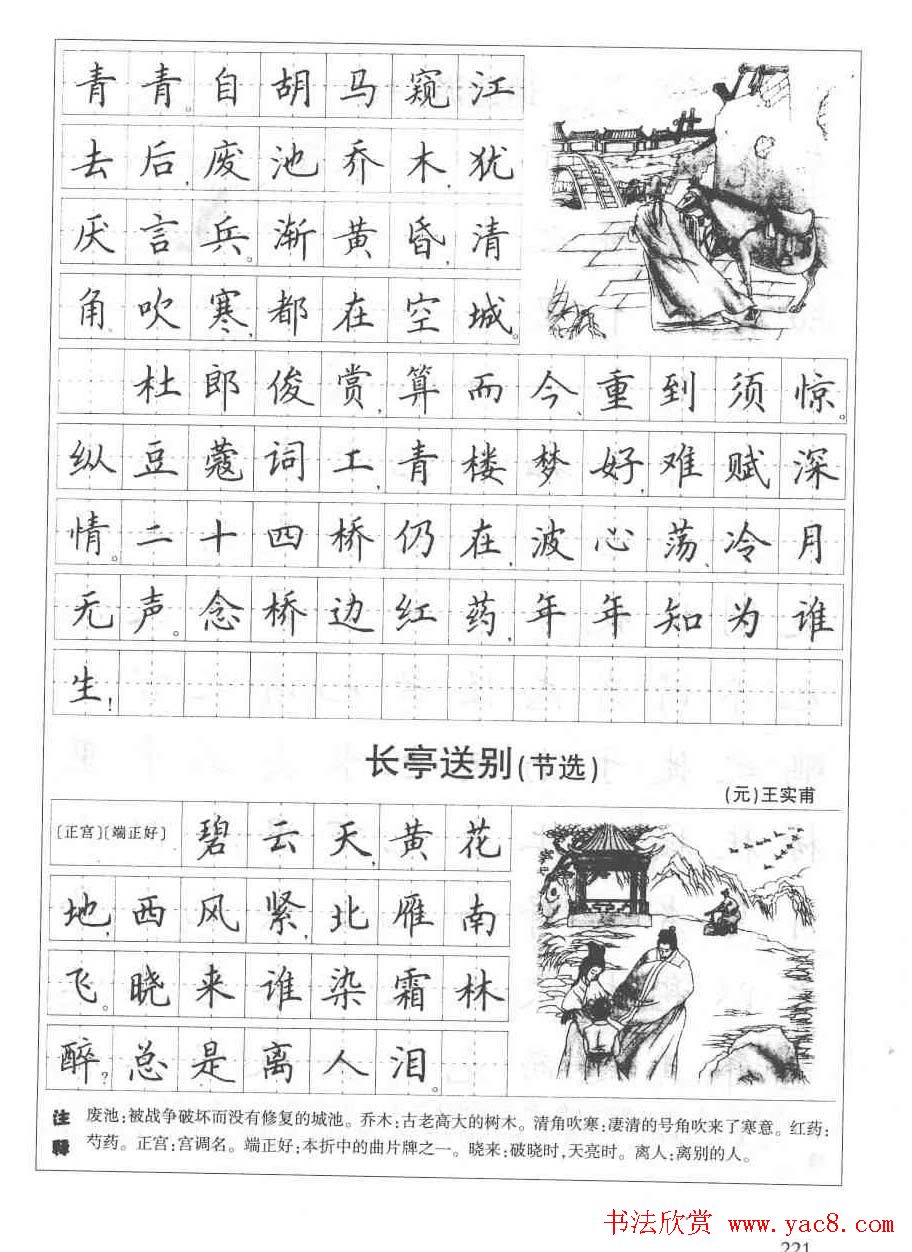 青青。自胡马窥江
去后,废池乔木,犹
厌言兵。渐黄昏,清
角吹寒,都在空城。
杜郎俊赏,算而今、重到须惊。
纵豆蔻词工,青楼梦好,难赋深
情。二十四桥仍在,波心荡、冷月
无声。念桥边红药,年年知为谁
生!
长亭送别(节选)
(元)王实甫
〔正宫〕〔端正好〕碧云天,黄花
地,西风紧,北雁南
飞。晓来谁染霜林
醉?总是离人泪。
注释 废池:被战争破坏而没有修复的城池。乔木:古老高大的树木。清角吹寒:凄清的号角吹来了寒意。红药:
芍药。正宫:宫调名。端正好:本折中的曲片牌之一。晓来:破晓时,天亮时。离人:离别的人。
书法欣赏 www.yac8.com
221